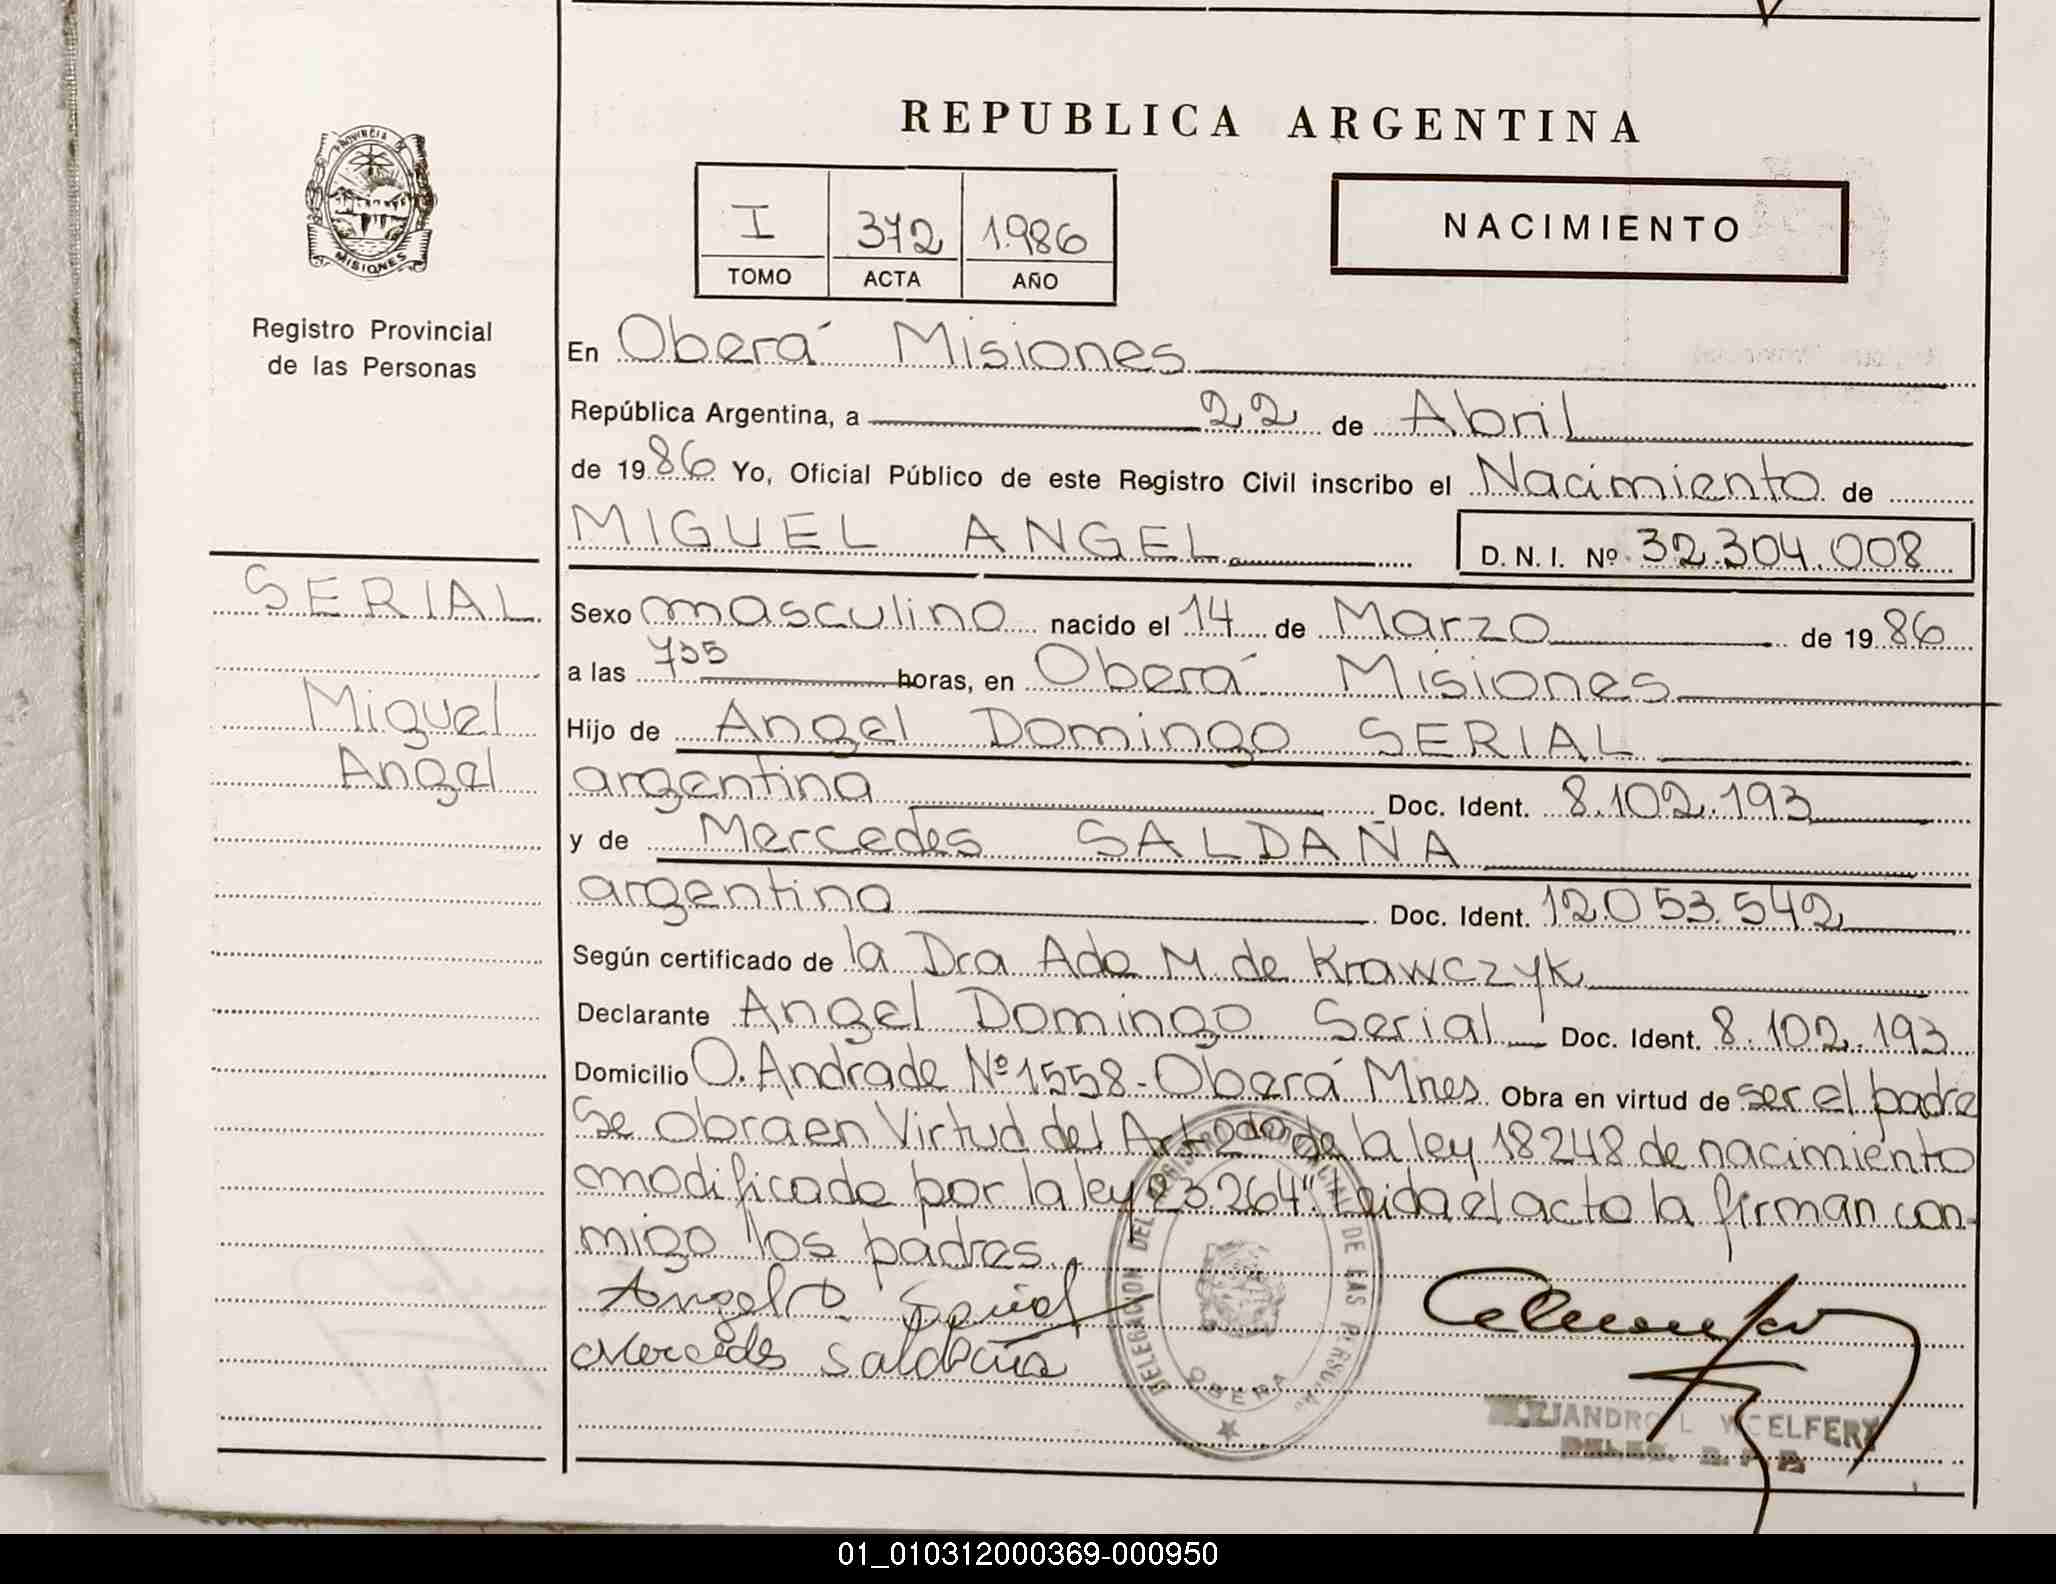 REPUBLICA ARGENTINA
PROVINCIA DE
MISIONES
Registro Provincial
de las Personas
I 372 1.986
TOMO ACTA AÑO
NACIMIENTO
En Oberá Misiones
República Argentina, a 22 de Abril
de 1986 Yo, Oficial Público de este Registro Civil inscribo el Nacimiento de
MIGUEL ANGEL D. N. I. Nº 32.304.008
SERIAL
Miguel
Angel
Sexo masculino nacido el 14 de Marzo de 1986
a las 735 horas, en Oberá Misiones
Hijo de Angel Domingo SERIAL
argentina Doc. Ident. 8.102.193
y de Mercedes SALDAÑA
argentina Doc. Ident. 12.053.542
Según certificado de la Dra Ada M. de Krawczyk
Declarante Angel Domingo Serial Doc. Ident. 8.102.193
Domicilio O. Andrade Nº 1558 - Oberá Mnes Obra en virtud de ser el padre
Se obra en Virtud del Art de la ley 18248 de nacimiento
modificado por la ley 23.264". Leida el acto la firman con-
migo los padres.
Angel D. Serial
Mercedes Saldaña
DELEGACION DEL REGISTRO PROVINCIAL DE LAS PERSONAS
OBERA
L
01_010312000369-000950